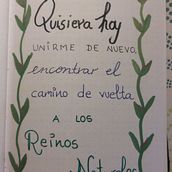 Quisiera hoy
UNIRME DE NUEVO,
encontrar el
camino de vuelta
A LOS
Reinos
Naturales